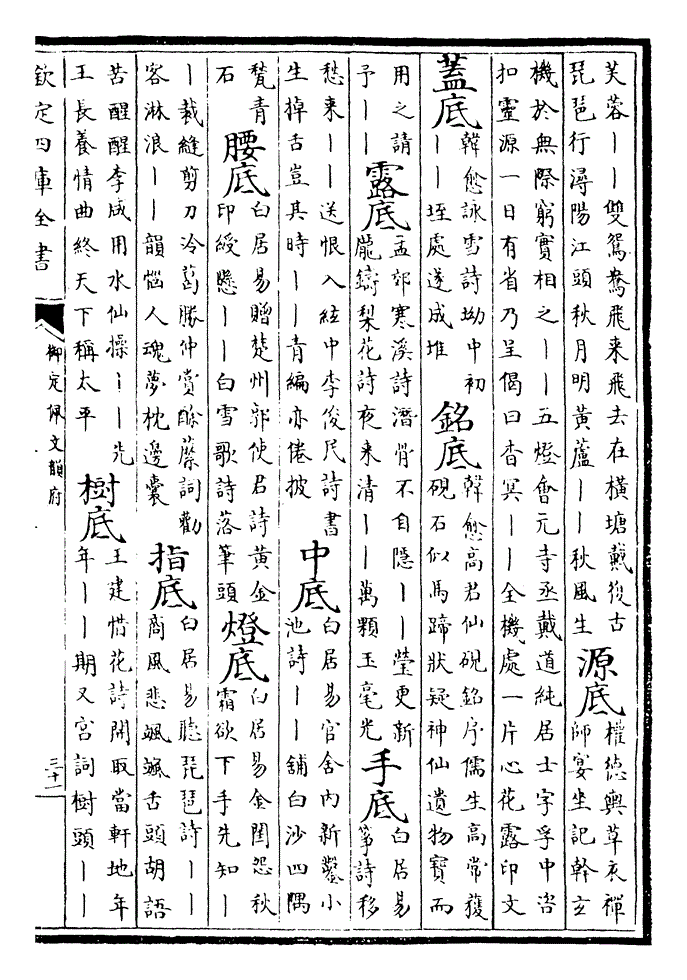 芙蓉——雙鴛鴦飛来飛去在橫塘戴復古
琵琶行潯陽江頭秋月明黃蘆——秋風生
源底
權德輿草衣禪
師宴坐記幹玄
機於無際窮實相之——五燈會元寺丞戴道純居士字孚中咨
扣靈源一日有省乃呈偈曰杳冥——全機處一片心花露印文
蓋底
韓愈詠雪詩坳中初
——垤處遂成堆
銘底
韓愈高君仙硯銘序儒生高常獲
硯石似馬蹄狀疑神仙遺物寶而
用之請
予——
露底
孟郊寒溪詩潛骨不自隱——瑩更新
龐鑄梨花詩夜来清——萬顆玉毫光
手底
白居易
箏詩移
愁来——送恨入絃中李俊民詩書
生掉舌豈其時——青編亦倦披
中底
白居易官舍内新鑿小
池詩——舖白沙四隅
甃青
石
腰底
白居易贈楚州郭使君詩黃金
印綬懸——白雪歌詩落筆頭
燈底
白居易金閨怨秋
霜欲下手先知—
—裁縫剪刀冷葛勝仲賞酴醾詞勸
客淋浪——韻惱人魂夢枕邊囊
指底
白居易聽琵琶詩——
商風悲颯颯舌頭胡語
苦醒醒李咸用水仙操——先
王長養情曲終天下稱太平
樹底
王建惜花詩開取當軒地年
年——期又宮詞樹頭——
欽定四庫全書
御定佩文韻府
三十一